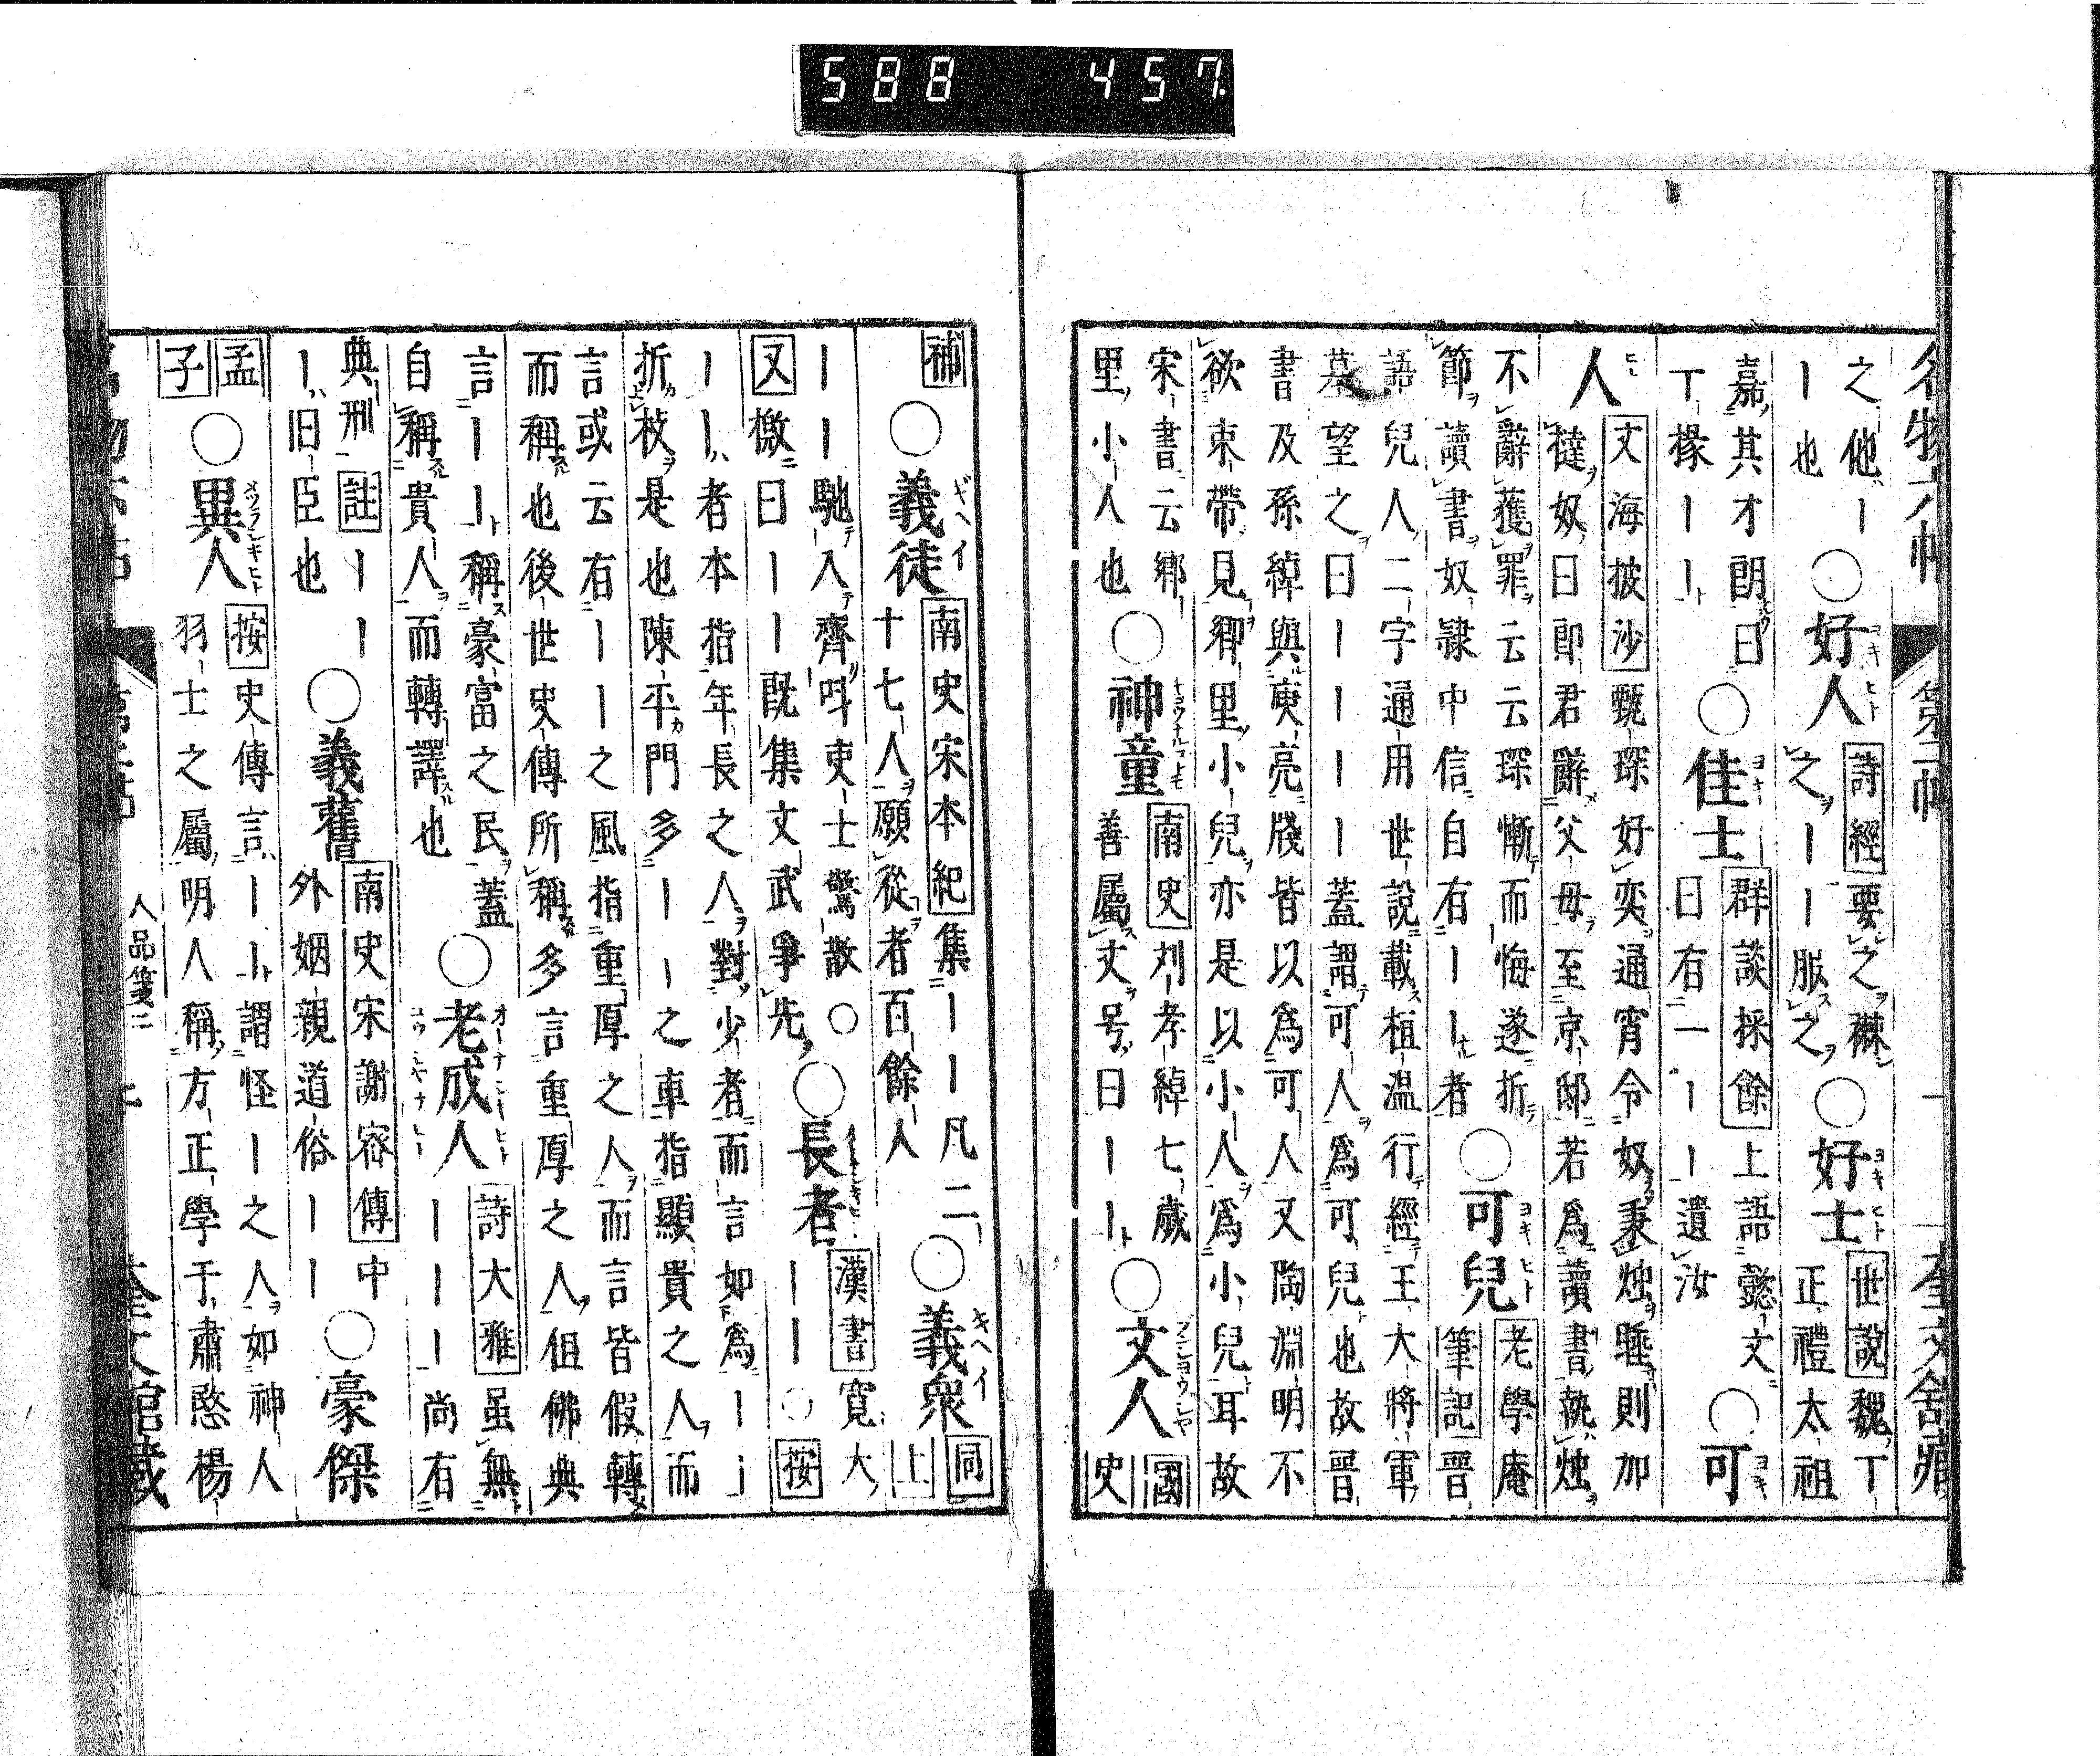 588 457
名物六帖 第二帖 奎文舘藏
之他｜○好人詩經要之襋
｜也 之｜｜服之○好士世說魏丁
嘉其才朗曰 正禮太祖
丁掾｜｜○佳士群談採餘上語懿文
曰有一｜｜遺汝○可
人文海披沙甄琛好奕通宵令奴秉燭睡則加
撻奴曰郎君辭父母至京邸若爲讀書執燭
不辭獲罪云云琛慚而悔遂折
節讀書奴隸中信自有｜｜者○可兒老學庵筆記晋
語兒人二字通用世說載桓温行經王大將軍
墓望之曰｜｜｜｜蓋謂可人爲可兒也故晋
書及孫綽與庾亮牋皆以爲可人又陶淵明不
欲束帶見鄉里小兒亦是以小人爲小兒耳故
宋書云鄉
里小人也○神童南史刘孝綽七歲
善屬文号曰｜｜○文人國史
補○義徒南史宋本紀集｜｜凡二
十七人願從者百餘人○義衆同上
｜｜馳入齊呌吏士驚散○
又檄曰｜｜｜既集文武爭先○長者漢書寬大
｜｜○按
｜｜者本指年長之人對少者而言如爲｜｜
折枝是也陳平門多｜｜之車指顯貴之人而
言或云有｜｜之風指重厚之人而言皆假轉
而稱也後世史傳所稱多言重厚之人但佛典
言｜｜稱豪富之民蓋
自稱貴人而轉譯也○老成人詩大雅虽無
｜｜｜尚有
典刑註｜｜
｜旧臣也○義舊南史宋謝宻傳中
外姻親道俗｜｜○豪傑
孟子○異人按史傳言｜｜謂怪｜之人如神人
羽士之屬明人稱方正學于肅愍楊
人品箋二
奎文舘藏